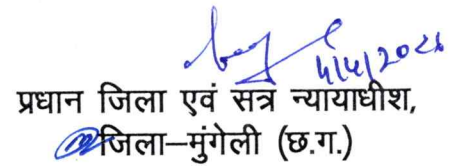 4/4/2026
प्रधान जिला एवं सत्र न्यायाधीश,
जिला–मुंगेली (छ.ग.)